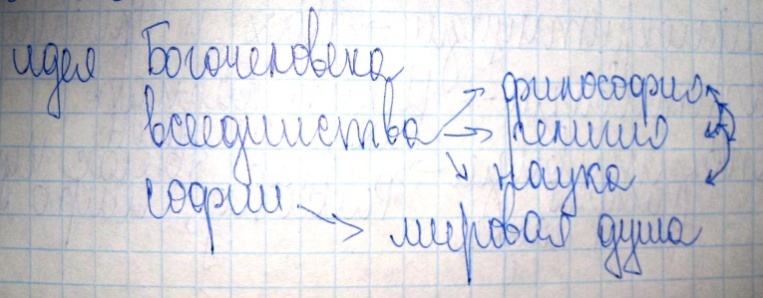 идея Богочеловека
философия
всеединства
религия
наука
софии
мировая душа